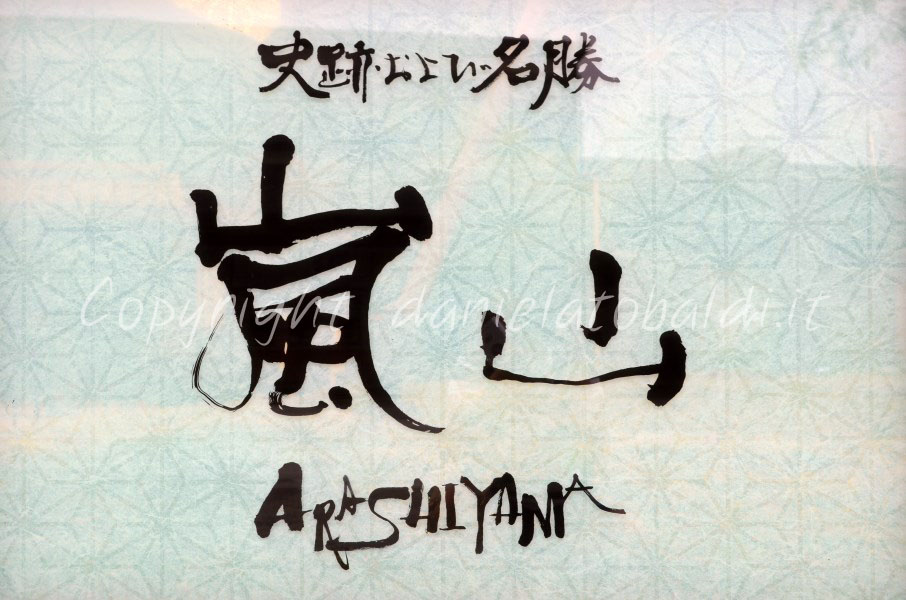 史跡・および名勝
嵐山
Copyright danielatobaldi.it
ARASHIYAMA